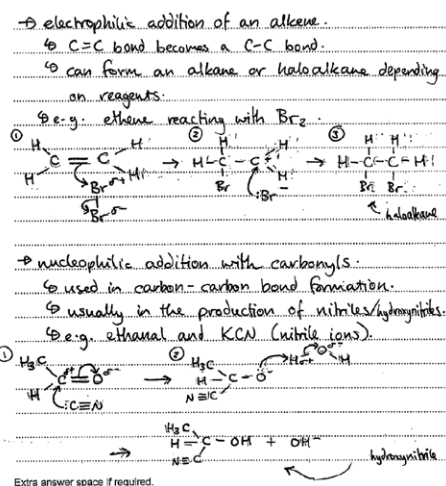 → electrophilic addition of an alkene.
↳ C=C bond becomes a C-C bond.
↳ can form an alkane or haloalkane depending
on reagents.
↳ e.g. ethene reacting with Br₂.
① ② ③
H H H H H H
C = C → H-C-C⁺ → H-C-C-H
H H H
Br δ+ Br :Br⁻ Br Br
Br δ- haloalkane
→ nucleophilic addition with carbonyls.
↳ used in carbon-carbon bond formation.
↳ usually in the production of nitriles/hydroxynitriles.
↳ e.g. ethanal and KCN (nitrile ions).
① ②
H₃C δ+ δ- H₃C H δ+ O δ- H
C = O → H-C-O⁻
H :C≡N N≡C
H₃C
→ H-C-OH + OH⁻
N≡C hydroxynitrile
Extra answer space if required.